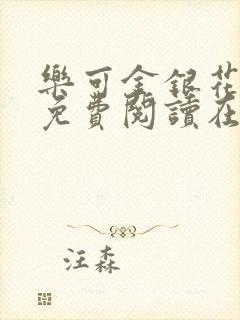 樂可金銀花
免費閱讀在
汪森